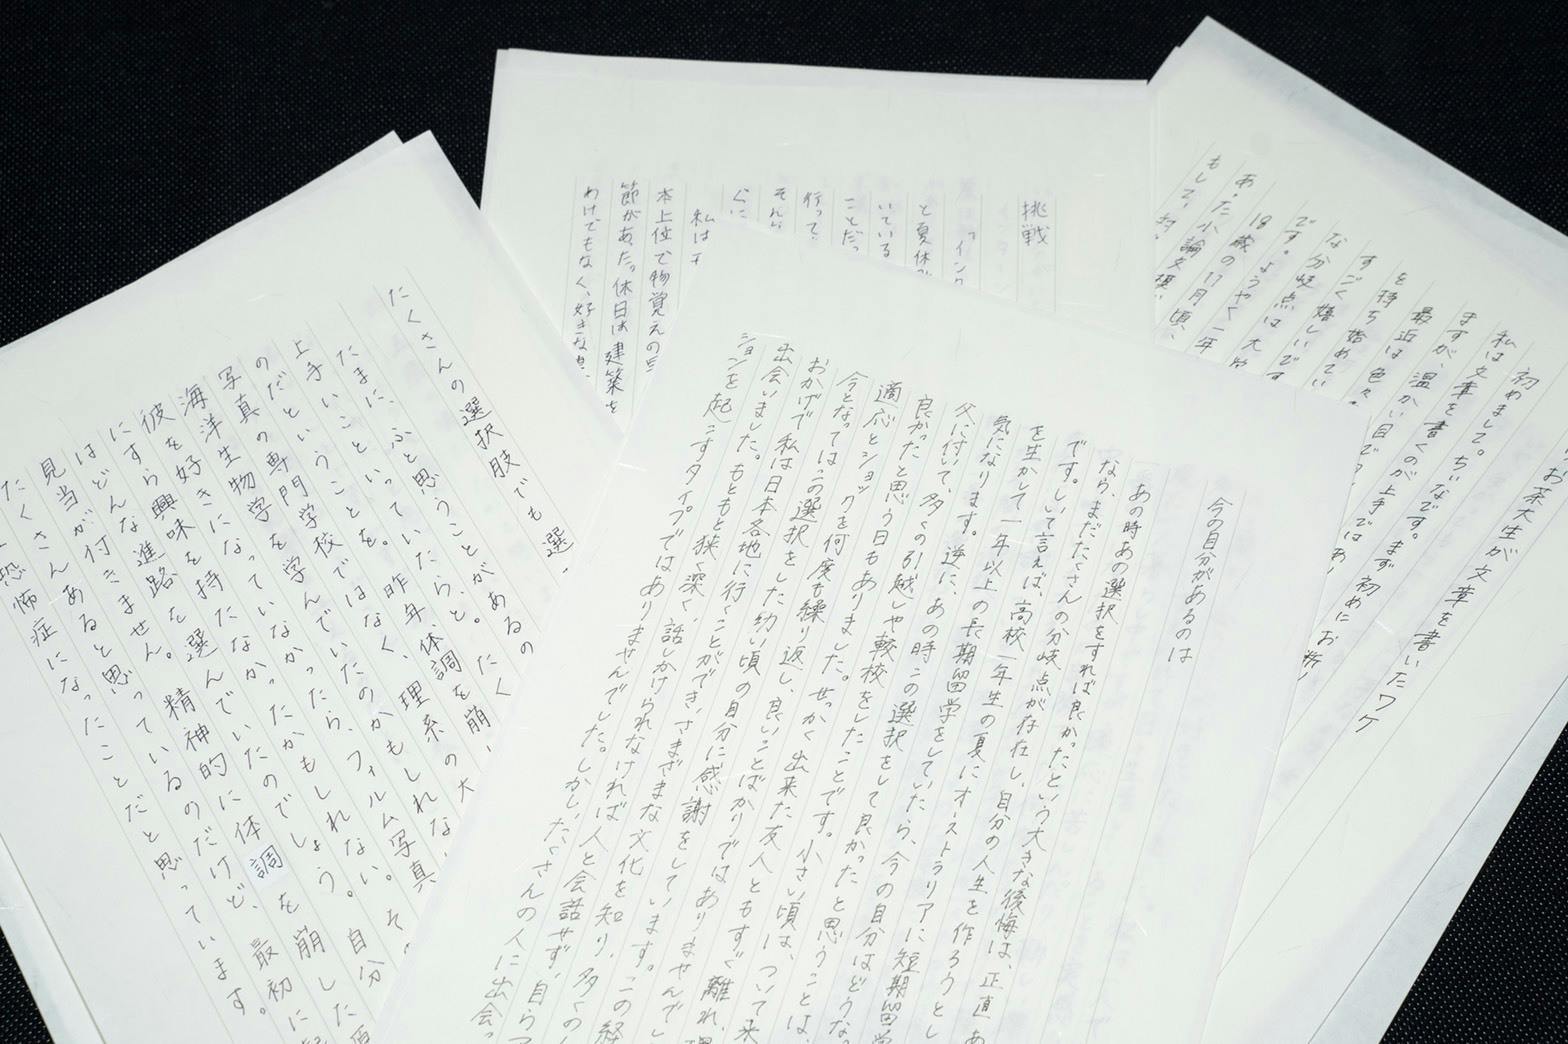 今の自分があるのは
あの時あの選択をすれば良かったという大きな後悔は、正直あ
なら、まだたくさんの分岐点が存在し、自分の人生を作ろうとし
です。しいて言えば、高校一年生の夏にオーストラリアに短期留学
を生かして一年以上の長期留学をしていたら、今の自分はどうな
気になります。逆に、あの時この選択をして良かったと思うことは、
父に付いて、多くの引越しや転校をしたことです。小さい頃は、ついて来
良かったと思う日もありました。せっかく出来た友人ともすぐ離れ、
適応とショックを何度も繰り返し、良いことばかりではありませんでし
今となってはこの選択をした幼い頃の自分に感謝をしています。この経
おかげで私は日本各地に行くことができ、さまざまな文化を知り、多くの
出会いました。もともと狭く深く、話しかけられなければ人と会話せず、自らア
ションを起こすタイプではありませんでした。しかし、たくさんの人に出会
たくさんの選択肢でも選
たまに、ふと思うことがあるの
上手いこといっていたらと。たく
のだということを。昨年、体調を崩
写真の専門学校ではなく、理系の大
海洋生物学を学んでいたのかもしれな
彼を好きになっていなかったら、フィルム写真
にすら興味を持たなかったかもしれない。そ
はどんな進路を選んでいたのでしょう。自分
見当が付きません。精神的に体調を崩した原
たくさんあると思っているのだけど、最初に
恐怖症になったことだと思っています。
挑戦
「イン
と夏休
いている
ことだっ
行って
そん
らに
私は
本上位で物覚えの
節があった。休日は建築を
わけでもなく、好きな
お茶大生が文章を書いたワケ
初めまして。ちいなです。まず初めにお断り
私は文章を書くのが上手ではあ
ますが、温かい目で
最近は色々
を持ち始めてい
すごく嬉しいです
な分岐点は、大
です。ようやく二年
18歳の11月頃、
あった小論文模
もして、対